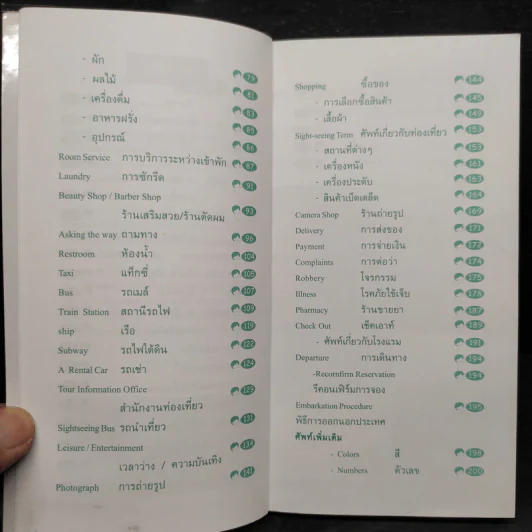 - ผัก 79
- ผลไม้ 81
- เครื่องดื่ม 83
- อาหารฝรั่ง 85
- อุปกรณ์ 86
Room Service การบริการระหว่างเข้าพัก 87
Laundry การซักรีด 91
Beauty Shop / Barber Shop
ร้านเสริมสวย/ร้านตัดผม 93
Asking the way ถามทาง 96
Restroom ห้องน้ำ 104
Taxi แท็กซี่ 105
Bus รถเมล์ 107
Train Station สถานีรถไฟ 109
ship เรือ 119
Subway รถไฟใต้ดิน 122
A Rental Car รถเช่า 124
Tour Information Office
สำนักงานท่องเที่ยว
Sightseeing Bus รถนำเที่ยว 131
Leisure / Entertainment 134
เวลาว่าง / ความบันเทิง
Photograph การถ่ายรูป 141
Shopping ซื้อของ 144
- การเลือกซื้อสินค้า 145
- เสื้อผ้า 149
Sight-seeing Term ศัพท์เกี่ยวกับท่องเที่ยว 153
- สถานที่ต่างๆ 153
- เครื่องหนัง 161
- เครื่องประดับ 163
- สินค้าเบ็ดเตล็ด 164
Camera Shop ร้านถ่ายรูป 169
Delivery การส่งของ 171
Payment การจ่ายเงิน 172
Complaints การต่อว่า 174
Robbery โจรกรรม 175
Illness โรคภัยไข้เจ็บ 178
Pharmacy ร้านขายยา 187
Check Out เช็คเอาท์ 189
- ศัพท์เกี่ยวกับโรงแรม 191
Departure การเดินทาง 194
-Reconfirm Reservation 194
รีคอนเฟิร์มการจอง
Embarkation Procedure 195
พิธีการออกนอกประเทศ
ศัพท์เพิ่มเติม
- Colors สี 198
- Numbers ตัวเลข 200